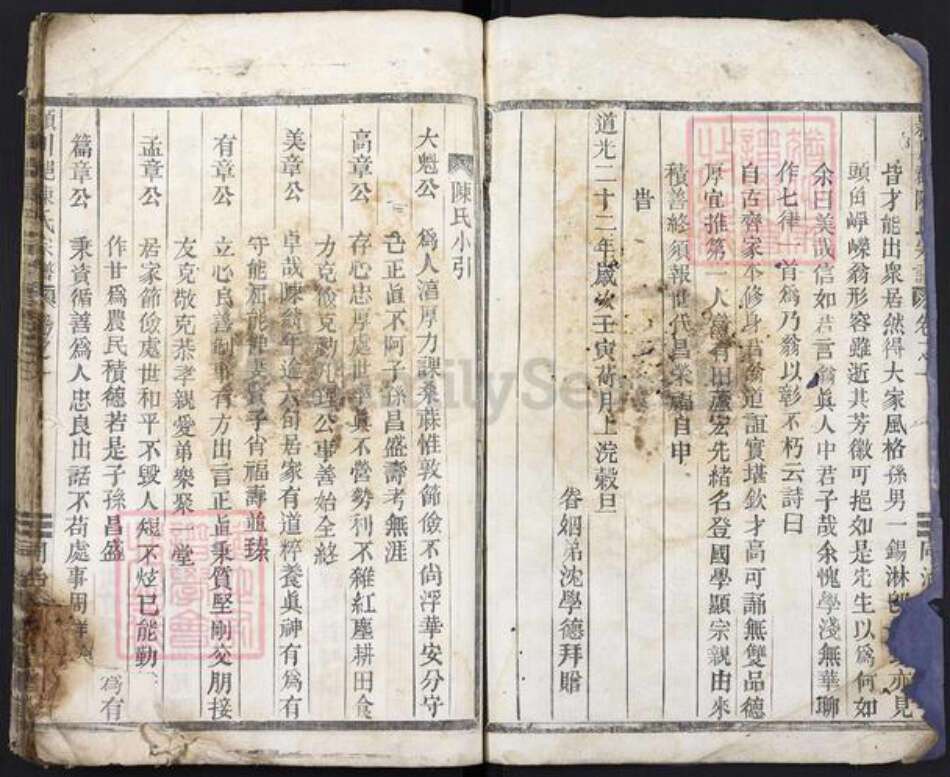 皆才能出衆居然得大家風格孫男一錫淋
亦見
頭角崢嶸翁形容雖逝其芳徽可挹如是先生以爲何如
余曰美哉信如君言翁眞人中君子哉余愧學淺無華聊
作七律一首爲乃翁以彰不朽云詩曰
自古齊家本修身
誼實堪欽才高可誦無雙品德
厚宜推第一人
宏先緒名登國學顯宗親由來
積善終須報世代昌榮
自申
道光二十二年歲次壬寅荷月上浣穀旦
眷姻弟沈學德拜贈
陳氏小引
大魁公 爲人渣厚力課桑蔴惟敦節儉不尙浮華安分守
己正眞不阿子孫昌盛壽考無涯
高章公 存心忠厚處世率眞不營勢利不雜紅塵耕田食
力克儉克勤
公事善始全終
美章公 卓哉陳翁年近六旬居家有道粹養眞神有爲有
守能屈能伸妻賢子肖福壽並臻
有章公 立心良善制事有方出言正眞秉質堅剛交朋接
友克敬克恭孝親愛弟樂聚一堂
孟章公 居家節儉處世和平不毀人短不炫已能勤
作甘爲農民積德若是子孫昌盛
篇章公 秉資循善爲人忠良出話不苟處事周詳
爲有
陳氏宗譜
FamilySearch